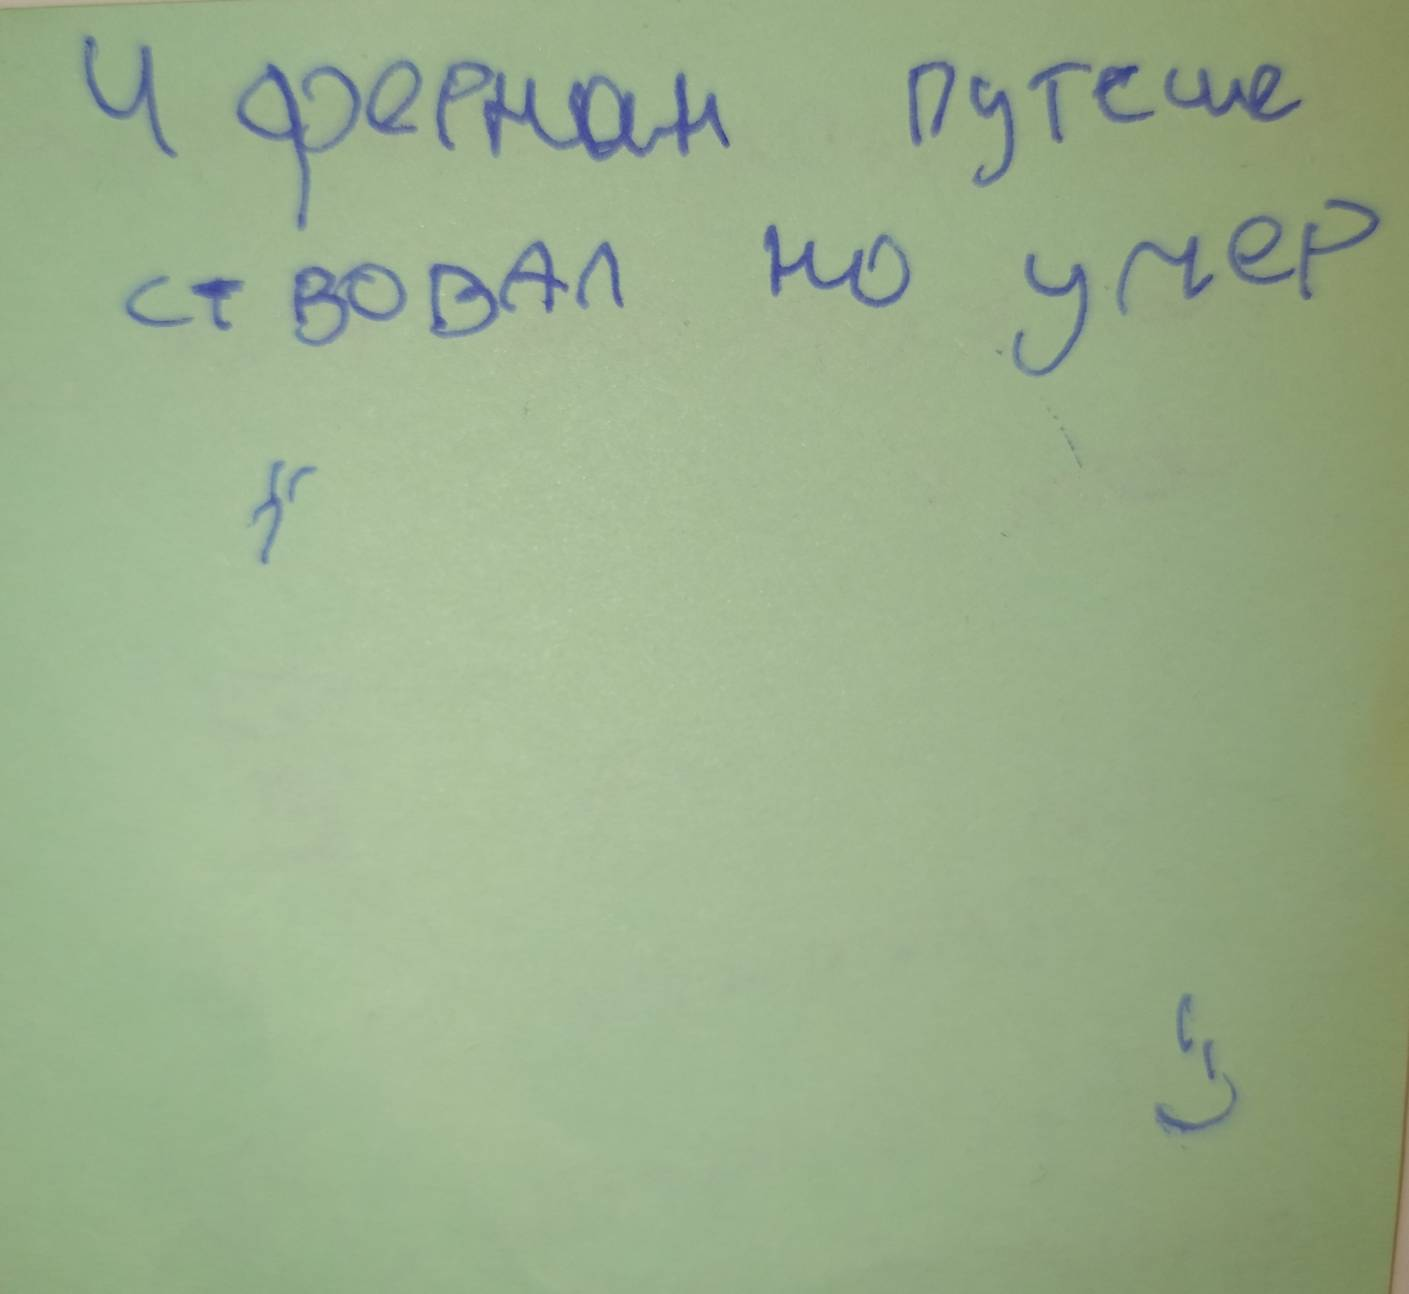 Ч фернан путеше
ствовал но умер